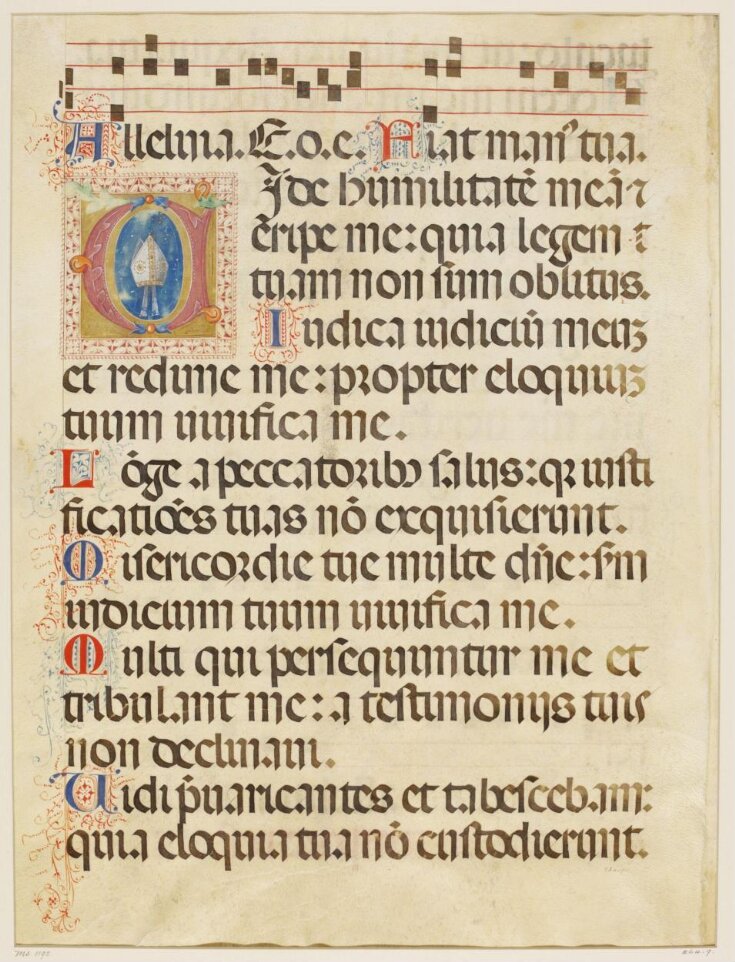 Alleluia. E.o.e. Fiat man⁹ tua.
Uide humilitatē meā ⁊
eripe me: quia legem
tuam non sum oblitus.
Iudica iudiciū meuȝ
et redime me: propter eloquiuȝ
tuum uiuifica me.
Lōge a peccatoribꝰ salus: qꝛ iusti
ficatiōēs tuas nō exquisierunt.
Misericordie tue multe dn̄e: scd̄m
iudicium tuum uiuifica me.
Multi qui persequuntur me et
tribulant me: a testimonijs tuis
non declinaui.
Uidi p̄uaricantes et tabesceb.am:
quia eloquia tua nō custodierunt.